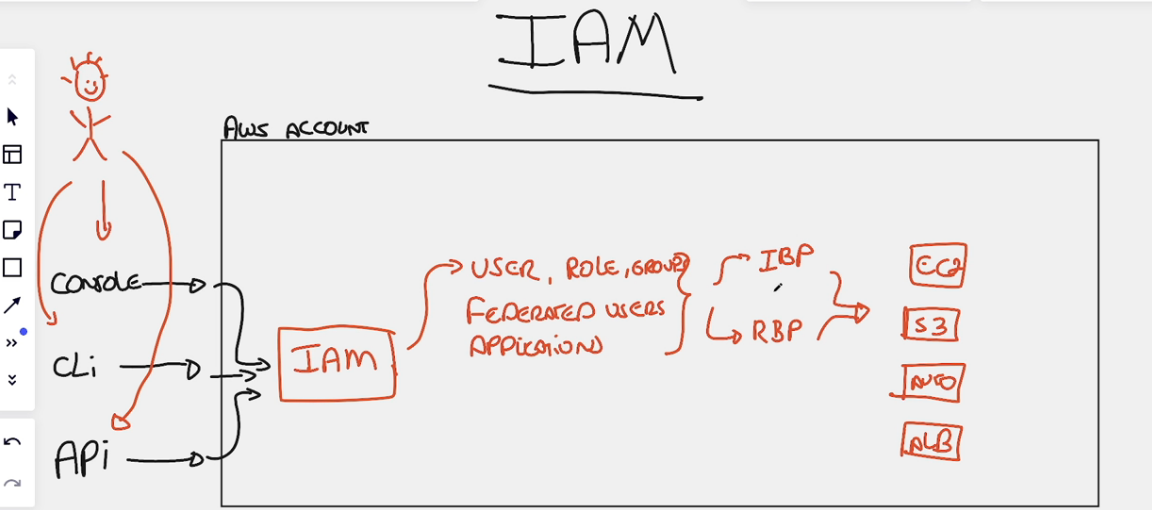 IAM
AWS ACCOUNT
CONSOLE
CLi
APi
IAM
USER, ROLE, GROUPS
FEDERATED USERS
APPlicATiONS
IBP
RBP
EC2
S3
AUTO
ALB
T